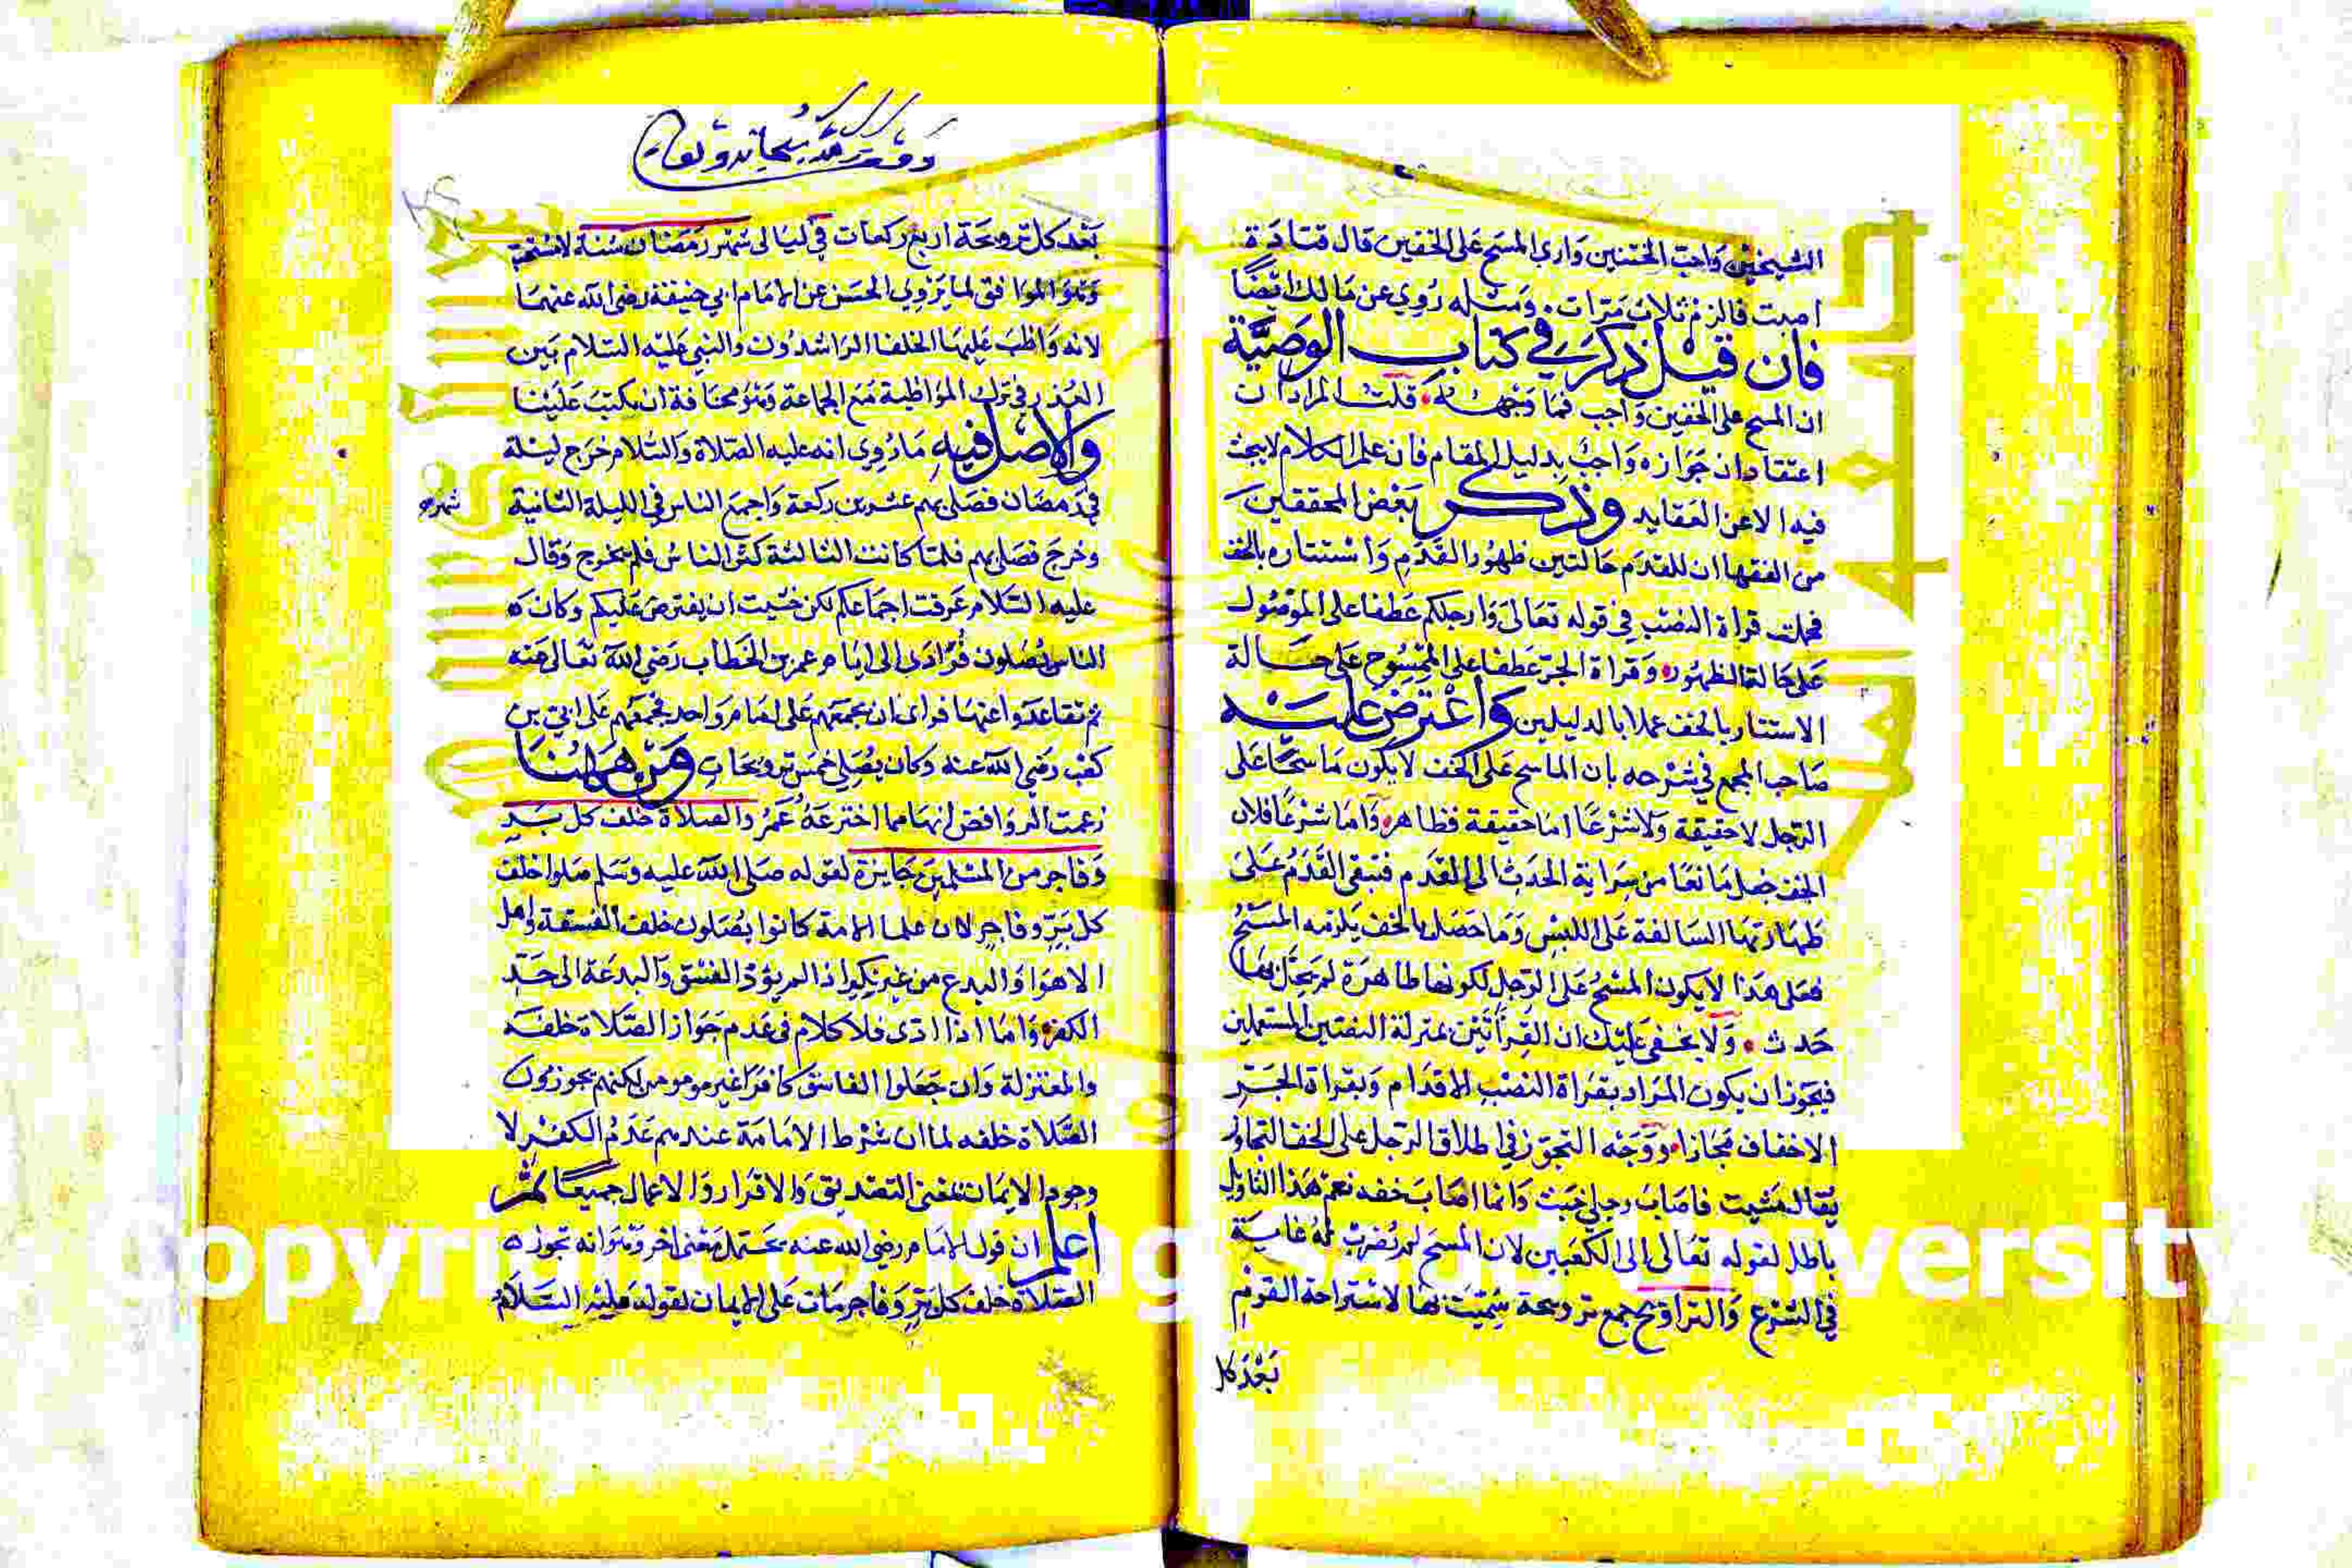 الشيخين واحب الختنين وارى المسح على الخفين قال قتادة
اصبت فالزم ثلاث مرات ومثله روي عن مالك ايضا
فان قيل ذكر في كتاب الوصية
ان المسح على الخفين واجب فما وجهه قلت المراد ان
اعتقاد ان جوازه واجب بدليل المقام فان علم الكلام لا يبحث
فيه الا عن العقايد وذكر بعض المحققين
من الفقها ان للقدم حالتين ظهور القدم واستتاره بالخف
فحملت قراة النصب في قوله تعالى وارجلكم عطفا على المغسول
على حالة الظهور وقراة الجر عطفا على الممسوح على حالة
الاستتار بالخف عملا بالدليلين واعترض عليه
صاحب المجمع في شرحه بان الماسح على الخف لا يكون ماسحا على
الرجل لا حقيقة ولا شرعا اما حقيقة فظاهر واما شرعا فلان
الخف جعل مانعا من سراية الحدث الى القدم فتبقى القدم على
طهارتها السالفة على اللبس وما حصل بالخف يلزمه المسح
فعلى هذا لا يكون المسح على الرجل لكونها طاهرة لم يحل بها
حدث ولا يخفى عليك ان القرأتين بمنزلة النصين المستعملين
فيجوز ان يكون المراد بقراة النصب الاقدام وبقراة الجر
الاخفاف مجازا ووجه التجوز في اطلاق الرجل على الخف التجاوز
يقال مشيت فاصاب رجلي خبث وانما اصاب خفه نعم هذا التاويل
باطل لقوله تعالى الى الكعبين لان المسح لم تضرب له غاية
في الشرع والتراويح جمع ترويحة سميت بها لاستراحة القوم
بعد كل
وقف لله سبحانه وتعالى
بعد كل ترويحة اربع ركعات في ليالى شهر رمضان سنة لا تستحب
وهو الموافق لما يروي الحسن عن الامام ابي حنيفة رضي الله عنهما
لانه واظب عليها الخلفا الراشدون والنبي عليه السلام بين
العذر في ترك المواظبة مع الجماعة وهو مخافة ان يكتب علينا
والاصل فيه ما روي انه عليه الصلاة والسلام خرج ليلة
في رمضان فصلى بهم عشرين ركعة واجمع الناس في الليلة الثانية
شهر
وخرج فصلى بهم فلما كانت الثالثة كثر الناس فلم يخرج وقال
عليه السلام عرفت اجماعكم لكن خشيت ان يفترض عليكم وكان
الناس يصلون فرادى الى ايام عمر بن الخطاب رضي الله تعالى عنه
ثم تقاعدوا عنها فراى ان يجمعهم على امام واحد فجمعهم على ابي بن
كعب رضي الله عنه وكان يصلي خمس ترويحات ومن ههنا
زعمت الروافض انها مما اخترعه عمر والصلاة خلف كل بر
وفاجر من المسلمين جايزة لقوله صلى الله عليه وسلم صلوا خلف
كل بر وفاجر لان علما الامة كانوا يصلون خلف الفسقة واهل
الاهوا والبدع من غير نكير اذا لم يؤد الفسق والبدعة الى حد
الكفر واما اذا ادى فلا كلام في عدم جواز الصلاة خلفه
والمعتزلة وان جعلوا الفاسق كافرا غير مومن لكنهم يجوزون
الصلاة خلفه لما ان شرط الامامة عندهم عدم الكفر لا
وجود الايمان بمعنى التصديق والاقرار والاعمال جميعا ثم
اعلم ان قول الامام رضي الله عنه يحتمل معنى اخر وهو انه تجوز
الصلاة خلف كل بر وفاجر مات على الايمان لقوله عليه السلام